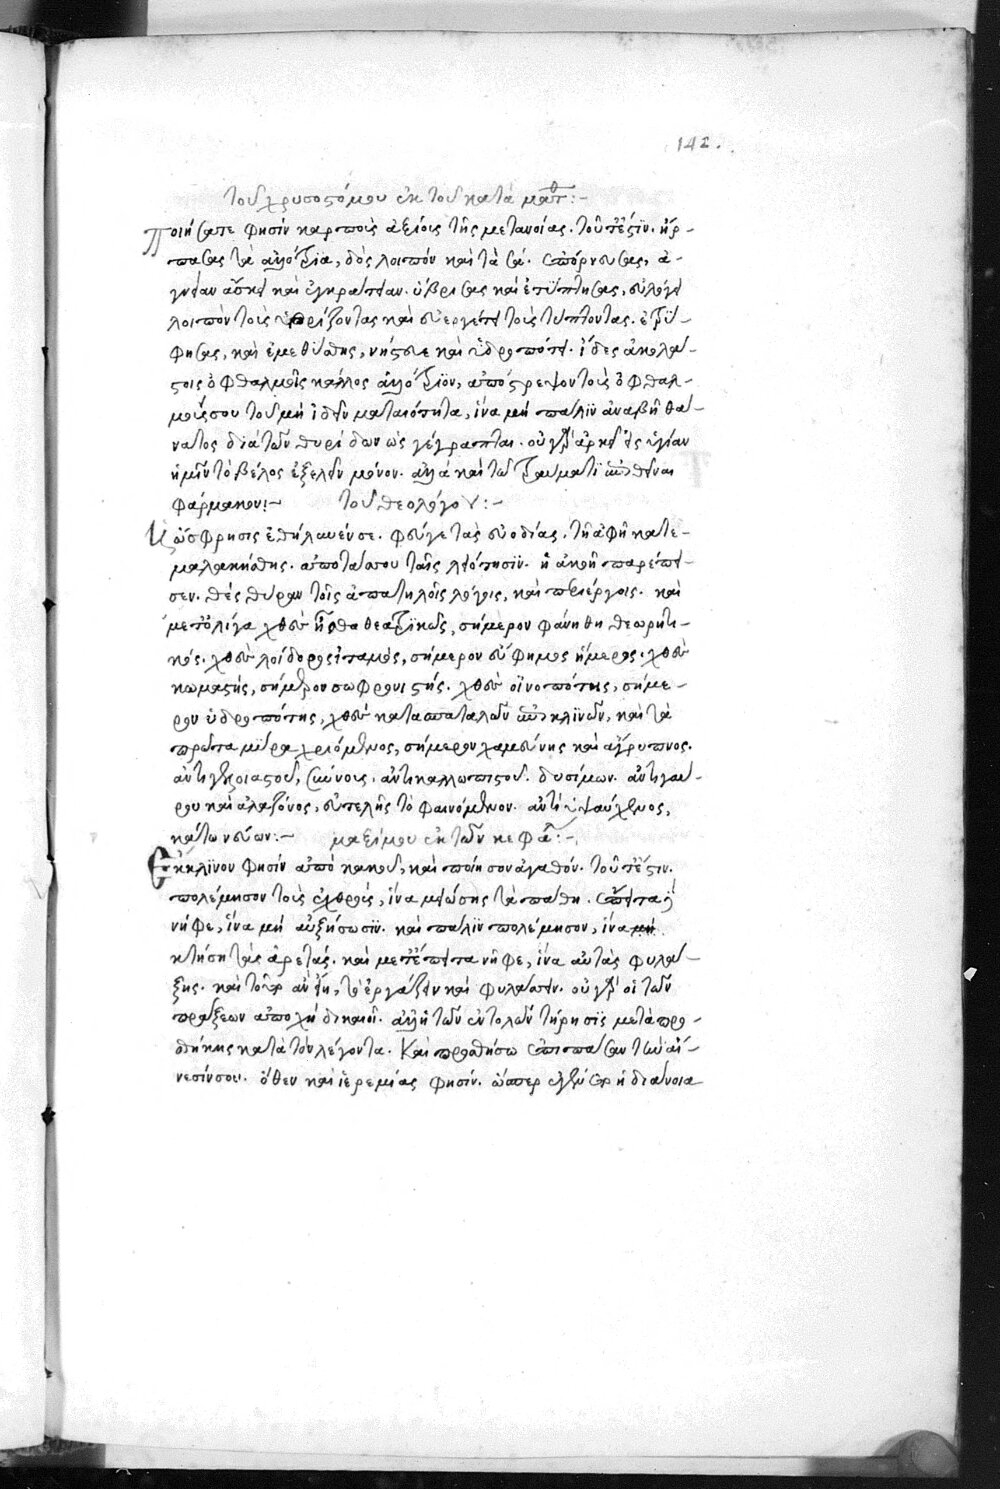 142.
τοῦ χρυσοστόμου ἐκ τοῦ κατὰ ματθ:-
Ποιήσατε φησὶν καρποὺς ἀξίους τῆς μετανοίας. τουτέστιν. ἥρ-
πασας τὰ ἀλλότρια, δὸς λοιπὸν καὶ τὰ σά. ἐπόρνευσας, ἁ-
γνείαν ἄσκει καὶ ἐγκράτειαν. ὕβρισας καὶ ἐτύπτησας, εὐλόγει
λοιπὸν τοὺς ὑβρίζοντας καὶ εὐεργέτει τοὺς τύπτοντας. ἐτρύ-
φησας, καὶ ἐμεθύσθης, νήστευε καὶ ὑδροπότει. ἴδες ἀκολά-
στοις ὀφθαλμοῖς κάλλος ἀλλότριον, ἀπόστρεψον τοὺς ὀφθαλ-
μούς σου τοῦ μὴ ἰδεῖν ματαιότητα, ἵνα μὴ πάλιν ἀναβῇ θά-
νατος διὰ τῶν θυρίδων ὡς γέγραπται. οὐ γὰρ ἀρκεῖ εἰς ὑγίαν
ἡμῖν τὸ βέλος ἐξελεῖν μόνον. ἀλλὰ καὶ τῷ τραύματι ἐπιθεῖναι
φάρμακον:- τοῦ θεολόγου:-
Ἡ ὄσφρησις ἐθήλυνέν σε. φεῦγε τὰς εὐοδίας. τῇ ἁφῇ κατε-
μαλακίσθης. ἀπόταξαι ταῖς λειότησιν. ἡ ἀκοὴ παρέπει-
σεν. θὲς θύραν τοῖς ἀπατηλοῖς λόγοις, καὶ περιέργοις. καὶ
μετ' ὀλίγα χθὲς ἦσθα θεατρικὸς, σήμερον φάνηθι θεωρητι-
κός. χθὲς λοίδορος ἰταμός, σήμερον εὔφημος ἥμερος. χθὲς
κωμαστής, σήμερον σωφρονιστής. χθὲς οἰνοπότης, σήμε-
ρον ὑδροπότης, χθὲς κατασπαταλῶν ἐπὶ κλινῶν, καὶ τὰ
πρῶτα μύρα χριόμενος, σήμερον χαμεύνης καὶ ἄγρυπνος.
ἀντὶ γελοιαστοῦ, σύννους. ἀντὶ καλλωπιστοῦ. δυσείμων. ἀντὶ γαύ-
ρου καὶ ἀλαζόνος, εὐτελὴς τὸ φαινόμενον. ἀντὶ ὑψαύχενος,
κάτω νεύων:- μαξίμου ἐκ τῶν κεφα:-
Ἔκκλινον φησὶν ἀπὸ κακοῦ, καὶ ποίησον ἀγαθόν. τουτέστιν.
πολέμησον τοὺς ἐχθροὺς, ἵνα μειώσῃς τὰ πάθη. ἔπειτα
νῆφε, ἵνα μὴ αὐξήσωσιν. καὶ πάλιν πολέμησον, ἵνα
κτήσῃ τὰς ἀρετάς. καὶ μετέπειτα νῆφε, ἵνα αὐτὰς φυλά-
ξῃς. καὶ τοῦτο ἂν εἴη, τὸ ἐργάζειν καὶ φυλάσσειν. οὐ γὰρ οἱ τῶν
πράξεων ἀποχὴ δικαιοῖ. ἀλλ' ἡ τῶν ἐντολῶν τήρησις μετὰ προ-
σθήκης κατὰ τὸν λέγοντα. Καὶ προσθήσω ἐπὶ πᾶσαν τὴν αἴ-
νεσίν σου. ὅθεν καὶ ἱερεμίας φησίν. ὥσπερ ἐγένετο ἡ διάνοια